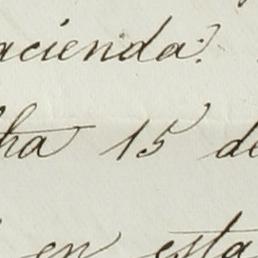 acienda:
ha 15 de
en esta